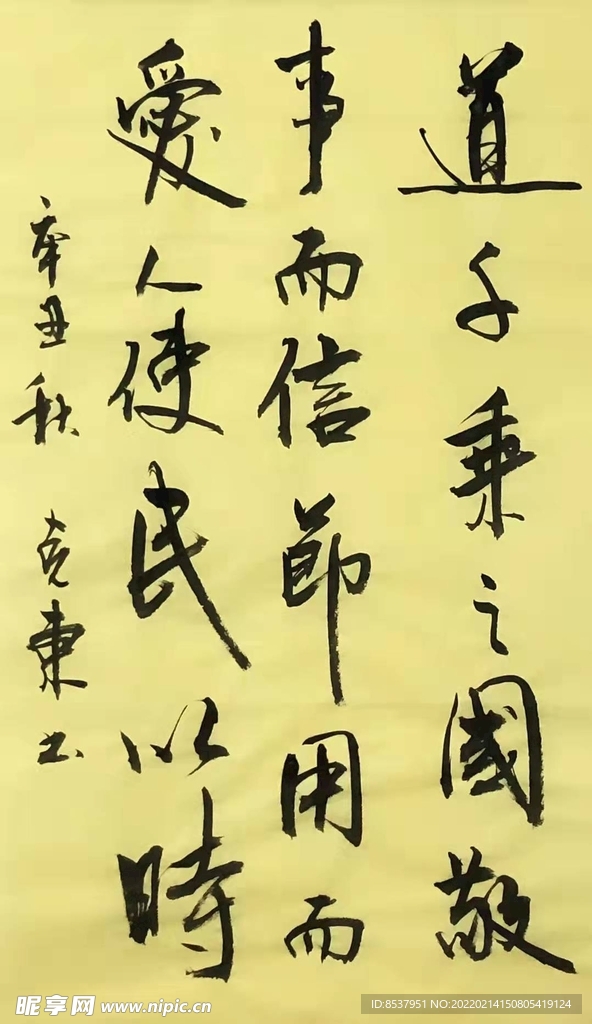 道千乘之國敬
事而信節用而
愛人使民以時
辛丑秋 克東书
昵享网 www.nipic.cn
ID:8537951 NO:20220214150805419124